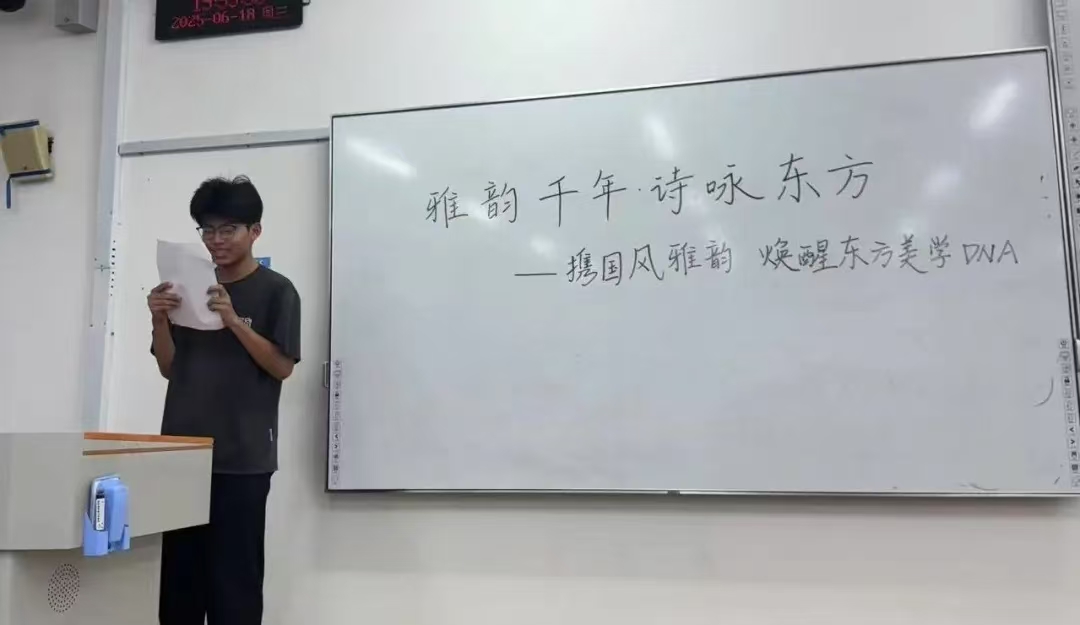 2025-06-18 周三
雅韵千年·诗咏东方
——携国风雅韵 焕醒东方美学DNA